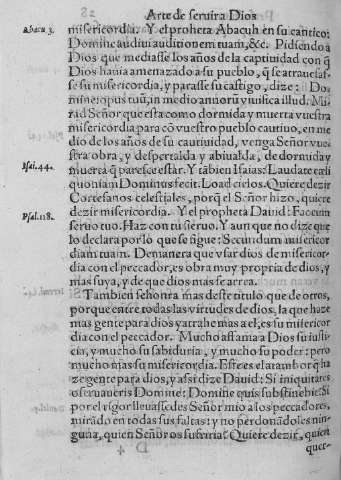 Arte de seruir a Dios
Abacu 3.
misericordia. Y el propheta Abacuh en su cantico:
Domine audiui auditionem tuam, &c. Pidiendo a
Dios que mediasse los años de la captiuidad con q̃
Dios hauia amenazado a su pueblo, q̃ se atrauesas-
se su misericordia, y parasse su castigo, dize: Do-
mine opus tuũ, in medio annorũ viuifica illud. Mi-
rad Señor que esta como dormida y muerta vuestra
misericordia para cõ vuestro pueblo cautiuo, en me
dio de los años de su cautiuidad, venga Señor vue-
stra obra, y despertalda y abiualda, de dormida y
muerta q̃ paresce estar. Y tãbien Isaias: Laudate cæli
Psal. 44.
quoniam Dominus fecit. Load cielos. Quiere dezir
Cortesanos celestiales, porq̃ el Señor hizo, quiere
dezir misericordia. Y el propheta Dauid: Fac cum
Psal. 118.
seruo tuo. Haz con tu sieruo. Y aun que no dize que
lo declara por lo que se sigue: Secundum misericor
diam tuam. De manera que vsar dios de misericor-
dia con el peccador, es obra muy propria de dios, y
mas suya, y de que dios mas se arrea.
Tambien se honra mas deste titulo que de otros,
porque entre todas las virtudes de dios, la que haze
mas gente para dios y atrahe mas a el, es su misericor
dia con el peccador. Mucho affama a Dios su iusti-
cia, y mucho su sabiduria, y mucho su poder: pero
mucho mas su misericordia. Este es el atambor q̃ ha
ze gente para dios, y assi dize Dauid: Si iniquitates
obseruaueris Domine: Domine quis substinebit: Si
por el rigor lleuassedes Señor mio a los peccadores,
mirãdo en todas sus faltas: y no perdonãdoles nin-
guna, quien Señor os sufriria? Quiere dezir, quien
quer-